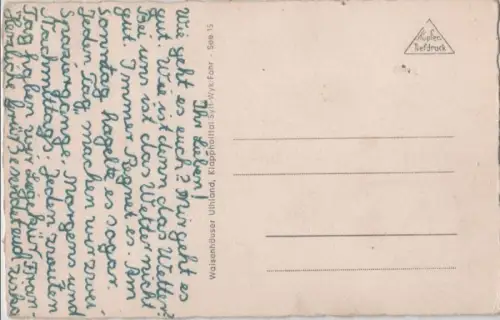 Ihr Lieben!
Wie geht es euch? Mir geht es
gut. Wie ist denn das Wetter?
Bei uns ist das Wetter nicht
gut. Immer Regnet es. Am
Sonntag hagelte es sogar.
Jeden Tag machen wir zwei
Spaziergänge. Morgens und
Nachmittags. Jeden zweiten
Tag haben wir
Herzliche Grüße
Waisenhäuser Uthland, Klappholttal-Sylt-Wyk-Föhr - Seb 15
Kupfer-
Tiefdruck